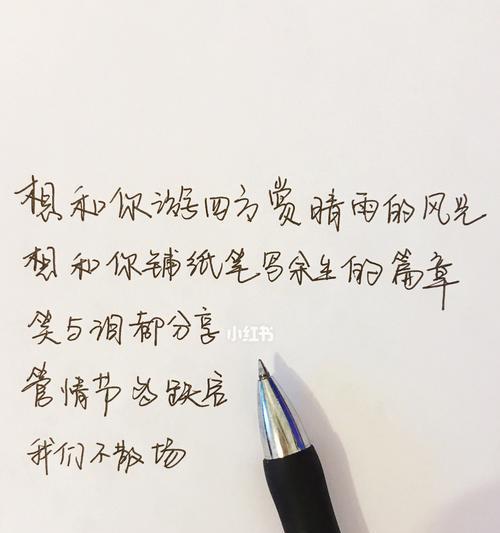 想和你游四方赏晴雨的风光
想和你铺纸笔写余生的篇章
笑与泪都分享 小红书
管情节跌宕
我们不散场